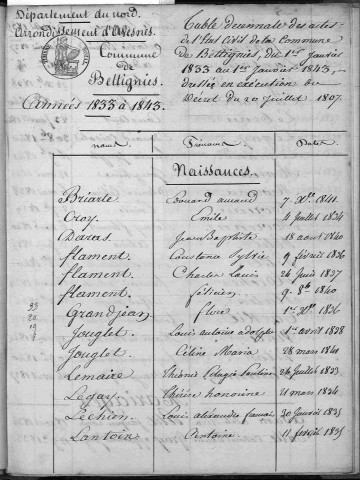 Département du nord.
Arrondissement d'Avesnes
Commune
de
Bettignies.
Années 1833 à 1843.
Table décennale des actes
de l'Etat Civil de la Commune
de Bettignies, du 1er Janvier
1833 au 1er Janvier 1843,
dressée en exécution du
Décret du 20 Juillet 1807.
noms Prénoms Dates
Naissances.
Briarte Edouard amand 7 Xbre 1841
Croy Emile 4 Juillet 1834
Daras Jean Baptiste 18 aout 1840
flament Constance Sylvie 9 février 1836
flament Charles Louis 24 Juin 1837
flament félicien 9 8bre 1840
Grandjean flore 1er Xbre 1836
Jouglet Louis antoine adolphe 1er avril 1838
Jouglet Céline Maria 28 mars 1841
Lemaire 24 Juillet 1833
Legay honorine 11 mars 1834
Léchien Louis alexandre 30 Janvier 1835
Lantoin Antoine 11 1835